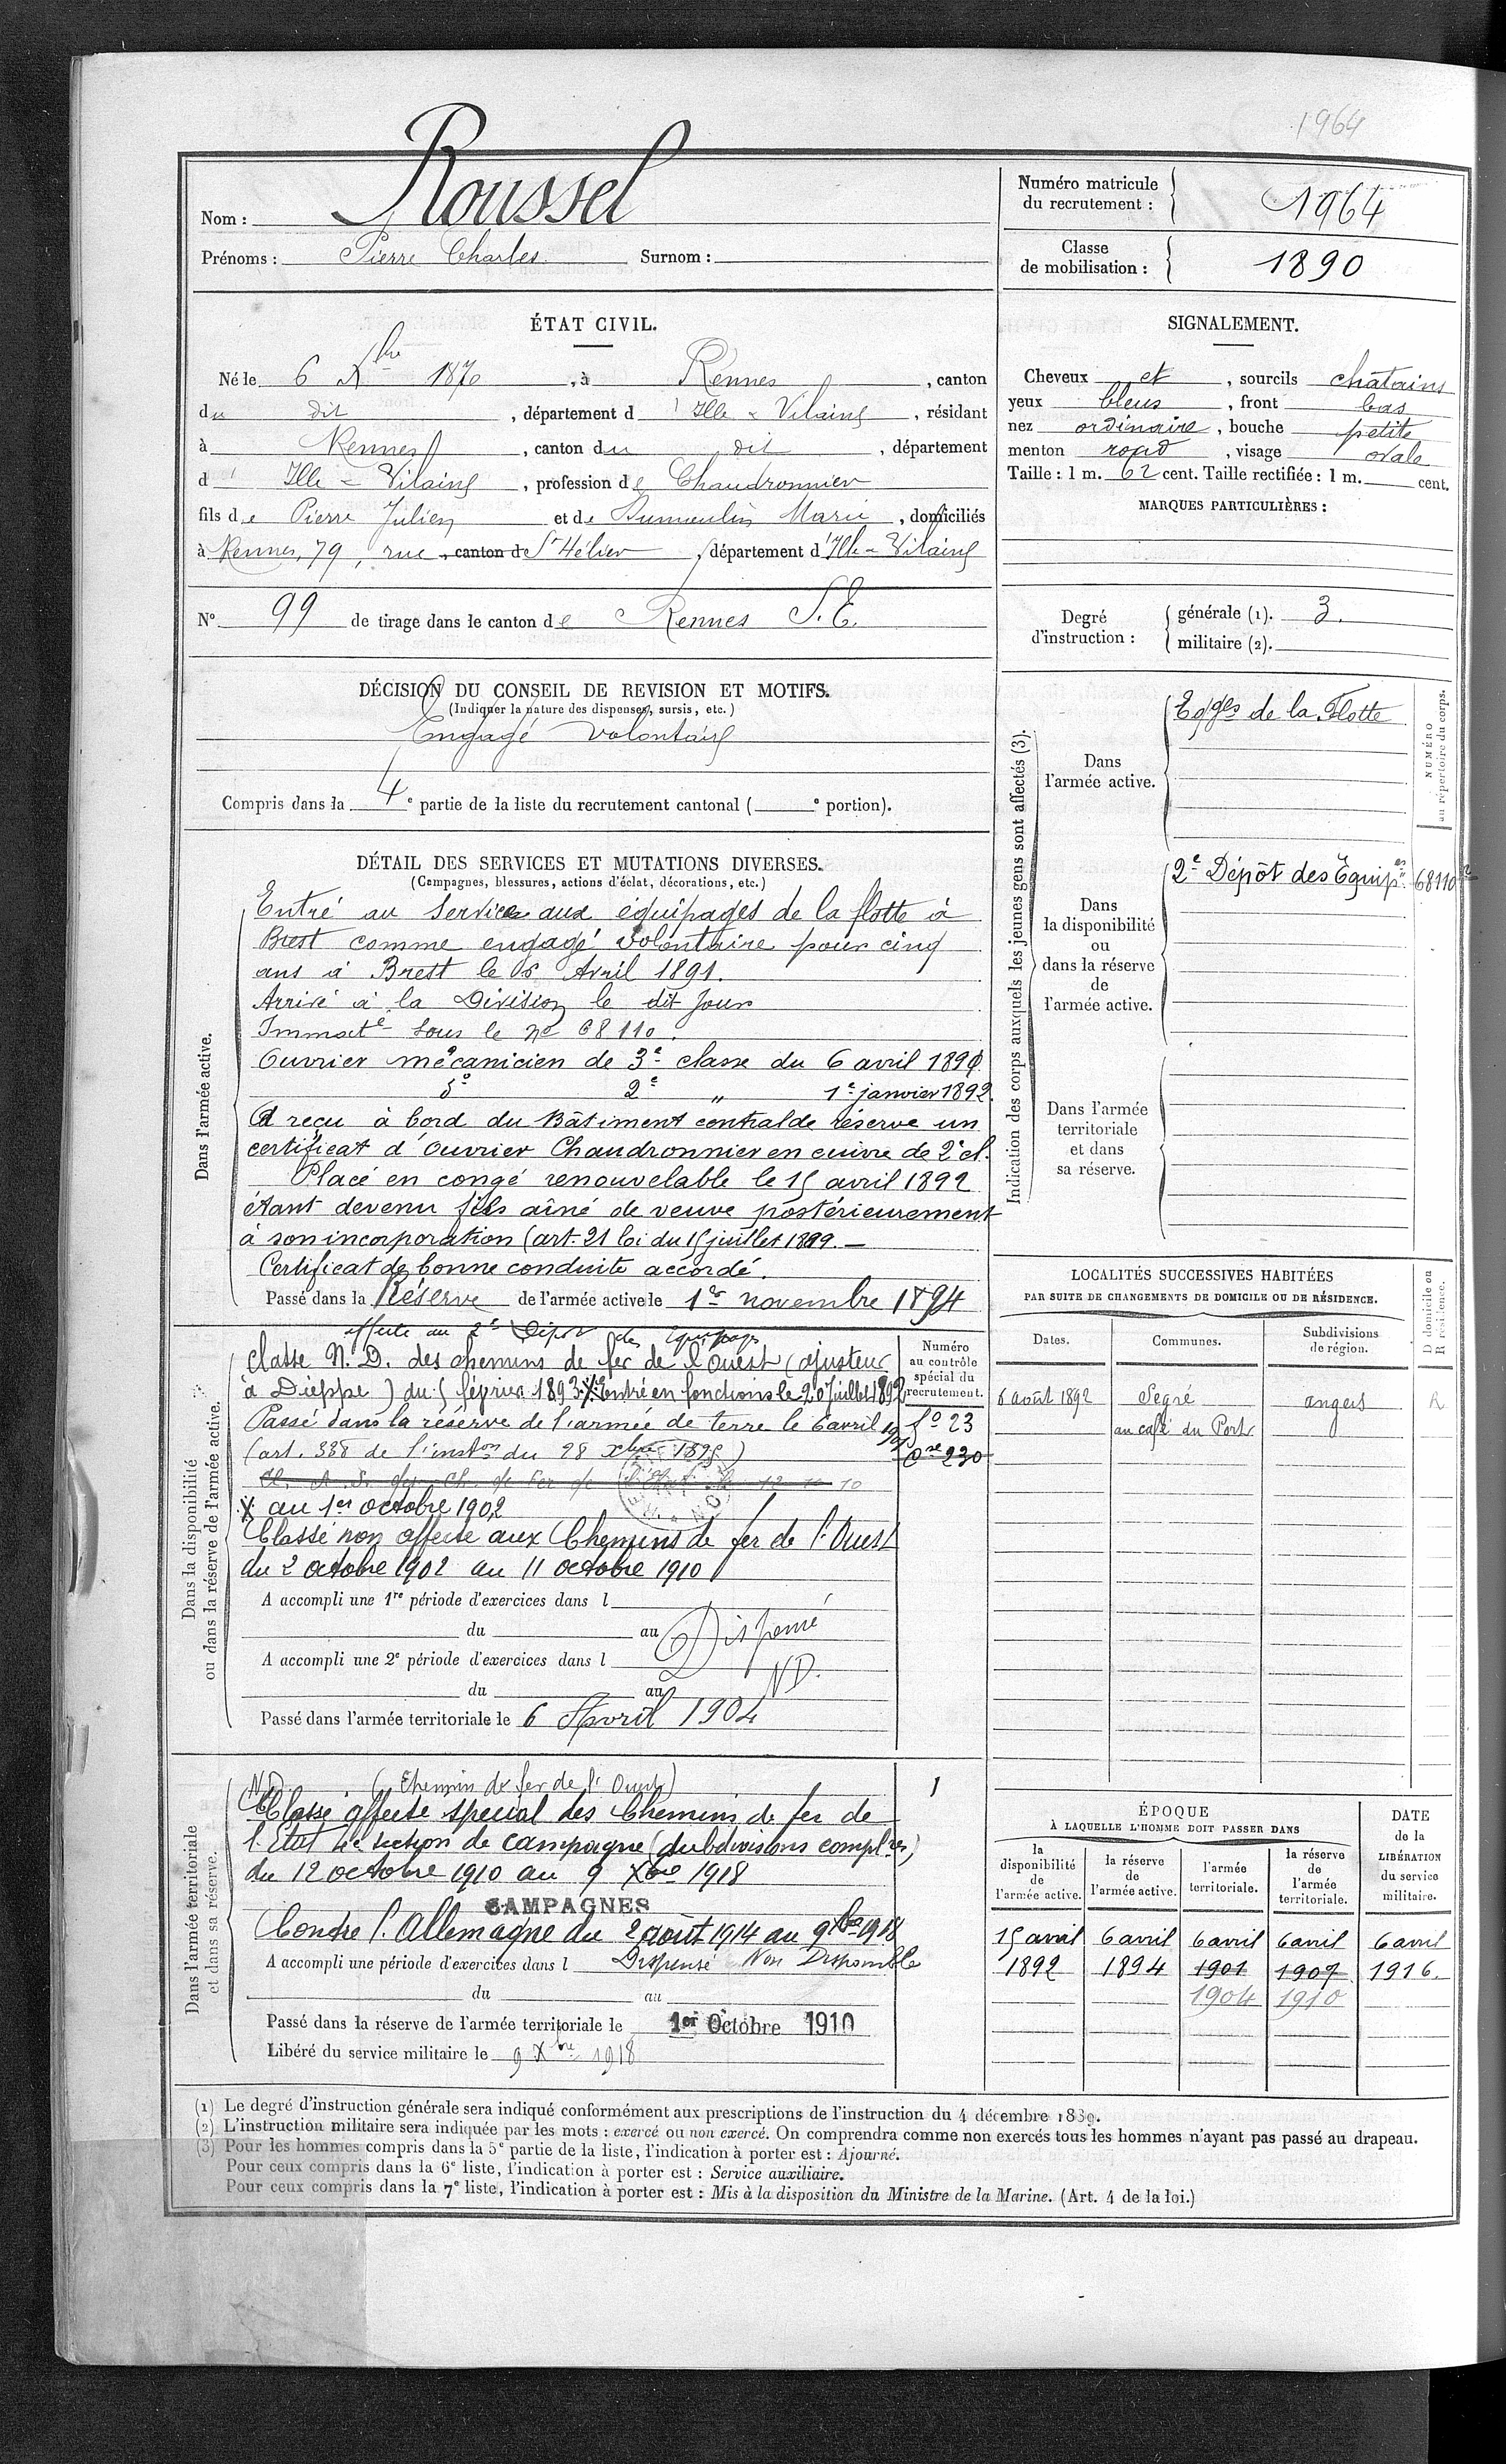 1964
Nom : Roussel
Prénoms : Pierre Charles Surnom :
Numéro matricule du recrutement : 1964
Classe de mobilisation : 1890
ÉTAT CIVIL.
Né le 6 Xbre 1870, à Rennes, canton
du dit, département d'Ille-&-Vilaine, résidant
à Rennes, canton du dit, département
d'Ille-&-Vilaine, profession de Chaudronnier
fils de Pierre Julien et de Dumoulin Marie, domiciliés
à Rennes, 79, rue canton de St Hélier, département d'Ille-&-Vilaine
N° 99 de tirage dans le canton de Rennes S.E.
SIGNALEMENT.
Cheveux et, sourcils châtains
yeux bleus, front bas
nez ordinaire, bouche petite
menton rond, visage ovale
Taille : 1 m. 62 cent. Taille rectifiée : 1 m. cent.
MARQUES PARTICULIÈRES :
Degré d'instruction : générale (1). 3.
militaire (2).
DÉCISION DU CONSEIL DE REVISION ET MOTIFS.
(Indiquer la nature des dispenses, sursis, etc.)
Engagé volontaire
Compris dans la 4e partie de la liste du recrutement cantonal ( e portion).
DÉTAIL DES SERVICES ET MUTATIONS DIVERSES.
(Campagnes, blessures, actions d'éclat, décorations, etc.)
Dans l'armée active.
Entré au service aux équipages de la flotte à
Brest comme engagé volontaire pour cinq
ans à Brest le 6 Avril 1891.
Arrivé à la Division le dit jour
Immatlé sous le n° 68110.
Ouvrier mécanicien de 3e classe du 6 avril 1891
do 2e " 1er janvier 1892.
A reçu à bord du Bâtiment central de réserve un
certificat d'Ouvrier Chaudronnier en cuivre de 2e cl.
Placé en congé renouvelable le 15 avril 1892
étant devenu fils aîné de veuve postérieurement
à son incorporation (art. 21 loi du 15 juillet 1889. —
Certificat de bonne conduite accordé.
Passé dans la Réserve de l'armée active le 1er novembre 1894
Indication des corps auxquels les jeunes gens sont affectés (3).
NUMÉRO au répertoire du corps.
Dans l'armée active.
Eqges de la Flotte
Dans la disponibilité ou dans la réserve de l'armée active.
2e Dépôt des Équipes 68110
Dans l'armée territoriale et dans sa réserve.
Dans la disponibilité ou dans la réserve de l'armée active.
affecté au 2e Dépôt des Equipages
Classé N. D. des chemins de fer de l'Ouest (ajusteur
à Dieppe) du 5 février 1893 Entré en fonctions le 20 Juillet 1892
Passé dans la réserve de l'armée de terre le 6 avril 1901
(art. 338 de l'inston du 28 Xbre 1895)
au 1er octobre 1902
Classé non affecté aux Chemins de fer de l'Ouest
du 2 octobre 1902 au 11 octobre 1910
Numéro au contrôle spécial du recrutement.
fo 23
230
A accompli une 1re période d'exercices dans l
du au Dispensé
A accompli une 2e période d'exercices dans l
du au ND.
Passé dans l'armée territoriale le 6 Avril 1904
LOCALITÉS SUCCESSIVES HABITÉES
PAR SUITE DE CHANGEMENTS DE DOMICILE OU DE RÉSIDENCE.
Dates. Communes. Subdivisions de région. D domicile ou R résidence.
6 août 1892 Segré angers R
au café du Port
Dans l'armée territoriale et dans sa réserve.
ND (Chemin de fer de l'Ouest)
1
Classé affecté spécial des Chemins de fer de
l'Etat 4e section de campagne (subdivisions complres)
du 12 octobre 1910 au 9 Xbre 1918
CAMPAGNES
Contre l'Allemagne du 2 août 1914 au 9 Xbre 1918
A accompli une période d'exercices dans l Dispensé Non Disponible
du au
Passé dans la réserve de l'armée territoriale le 1er Octobre 1910
Libéré du service militaire le 9 Xbre 1918
ÉPOQUE
À LAQUELLE L'HOMME DOIT PASSER DANS
la disponibilité de l'armée active. la réserve de l'armée active. l'armée territoriale. la réserve de l'armée territoriale.
DATE de la LIBÉRATION du service militaire.
15 avril 6 avril 6 avril 6 avril 6 avril
1892 1894 1901 1907 1916.
1904 1910
(1) Le degré d'instruction générale sera indiqué conformément aux prescriptions de l'instruction du 4 décembre 1889.
(2) L'instruction militaire sera indiquée par les mots : exercé ou non exercé. On comprendra comme non exercés tous les hommes n'ayant pas passé au drapeau.
(3) Pour les hommes compris dans la 5e partie de la liste, l'indication à porter est : Ajourné.
Pour ceux compris dans la 6e liste, l'indication à porter est : Service auxiliaire.
Pour ceux compris dans la 7e liste, l'indication à porter est : Mis à la disposition du Ministre de la Marine. (Art. 4 de la loi.)